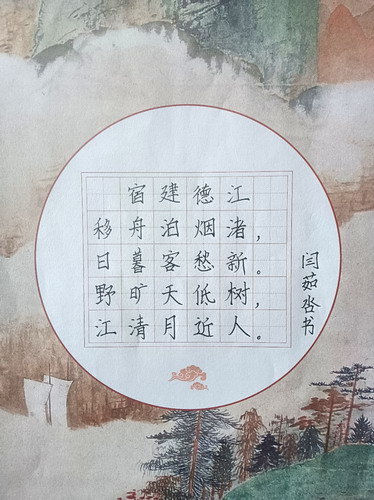 宿建德江
移舟泊烟渚，
日暮客愁新。
野旷天低树，
江清月近人。
闫茹沓书